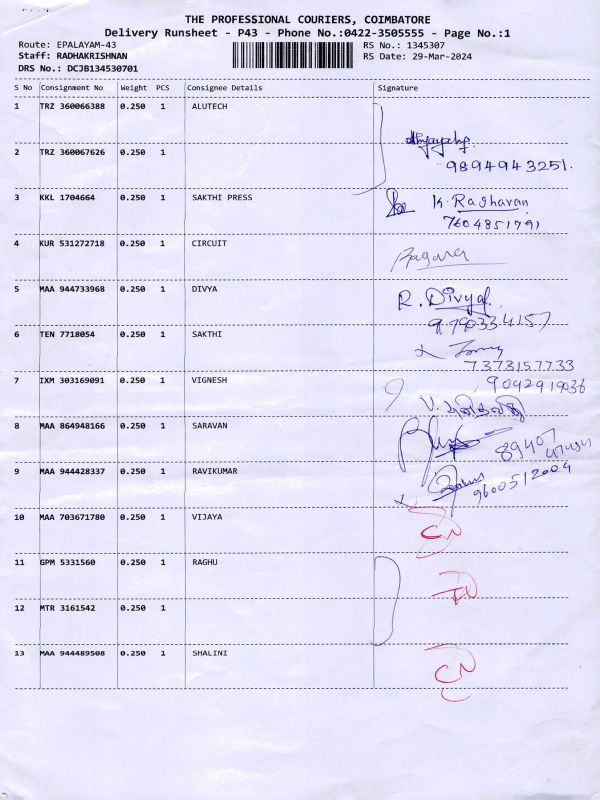 THE PROFESSIONAL COURIERS, COIMBATORE
Delivery Runsheet - P43 - Phone No.:0422-3505555 - Page No.:1
Route: EPALAYAM-43 RS No.: 1345307
Staff: RADHAKRISHNAN RS Date: 29-Mar-2024
DRS No.: DCJB134530701
S No Consignment No Weight PCS Consignee Details Signature
1 TRZ 360066388 0.250 1 ALUTECH
2 TRZ 360067626 0.250 1
9894943251.
3 KKL 1704664 0.250 1 SAKTHI PRESS K. Raghavan
7604851791
4 KUR 531272718 0.250 1 CIRCUIT
5 MAA 944733968 0.250 1 DIVYA R. Divya
6 TEN 7718054 0.250 1 SAKTHI
7373157733
7 IXM 303169091 0.250 1 VIGNESH
8 MAA 864948166 0.250 1 SARAVAN
9 MAA 944428337 0.250 1 RAVIKUMAR
9600512004
10 MAA 703671780 0.250 1 VIJAYA
11 GPM 5331560 0.250 1 RAGHU
12 MTR 3161542 0.250 1
13 MAA 944489508 0.250 1 SHALINI